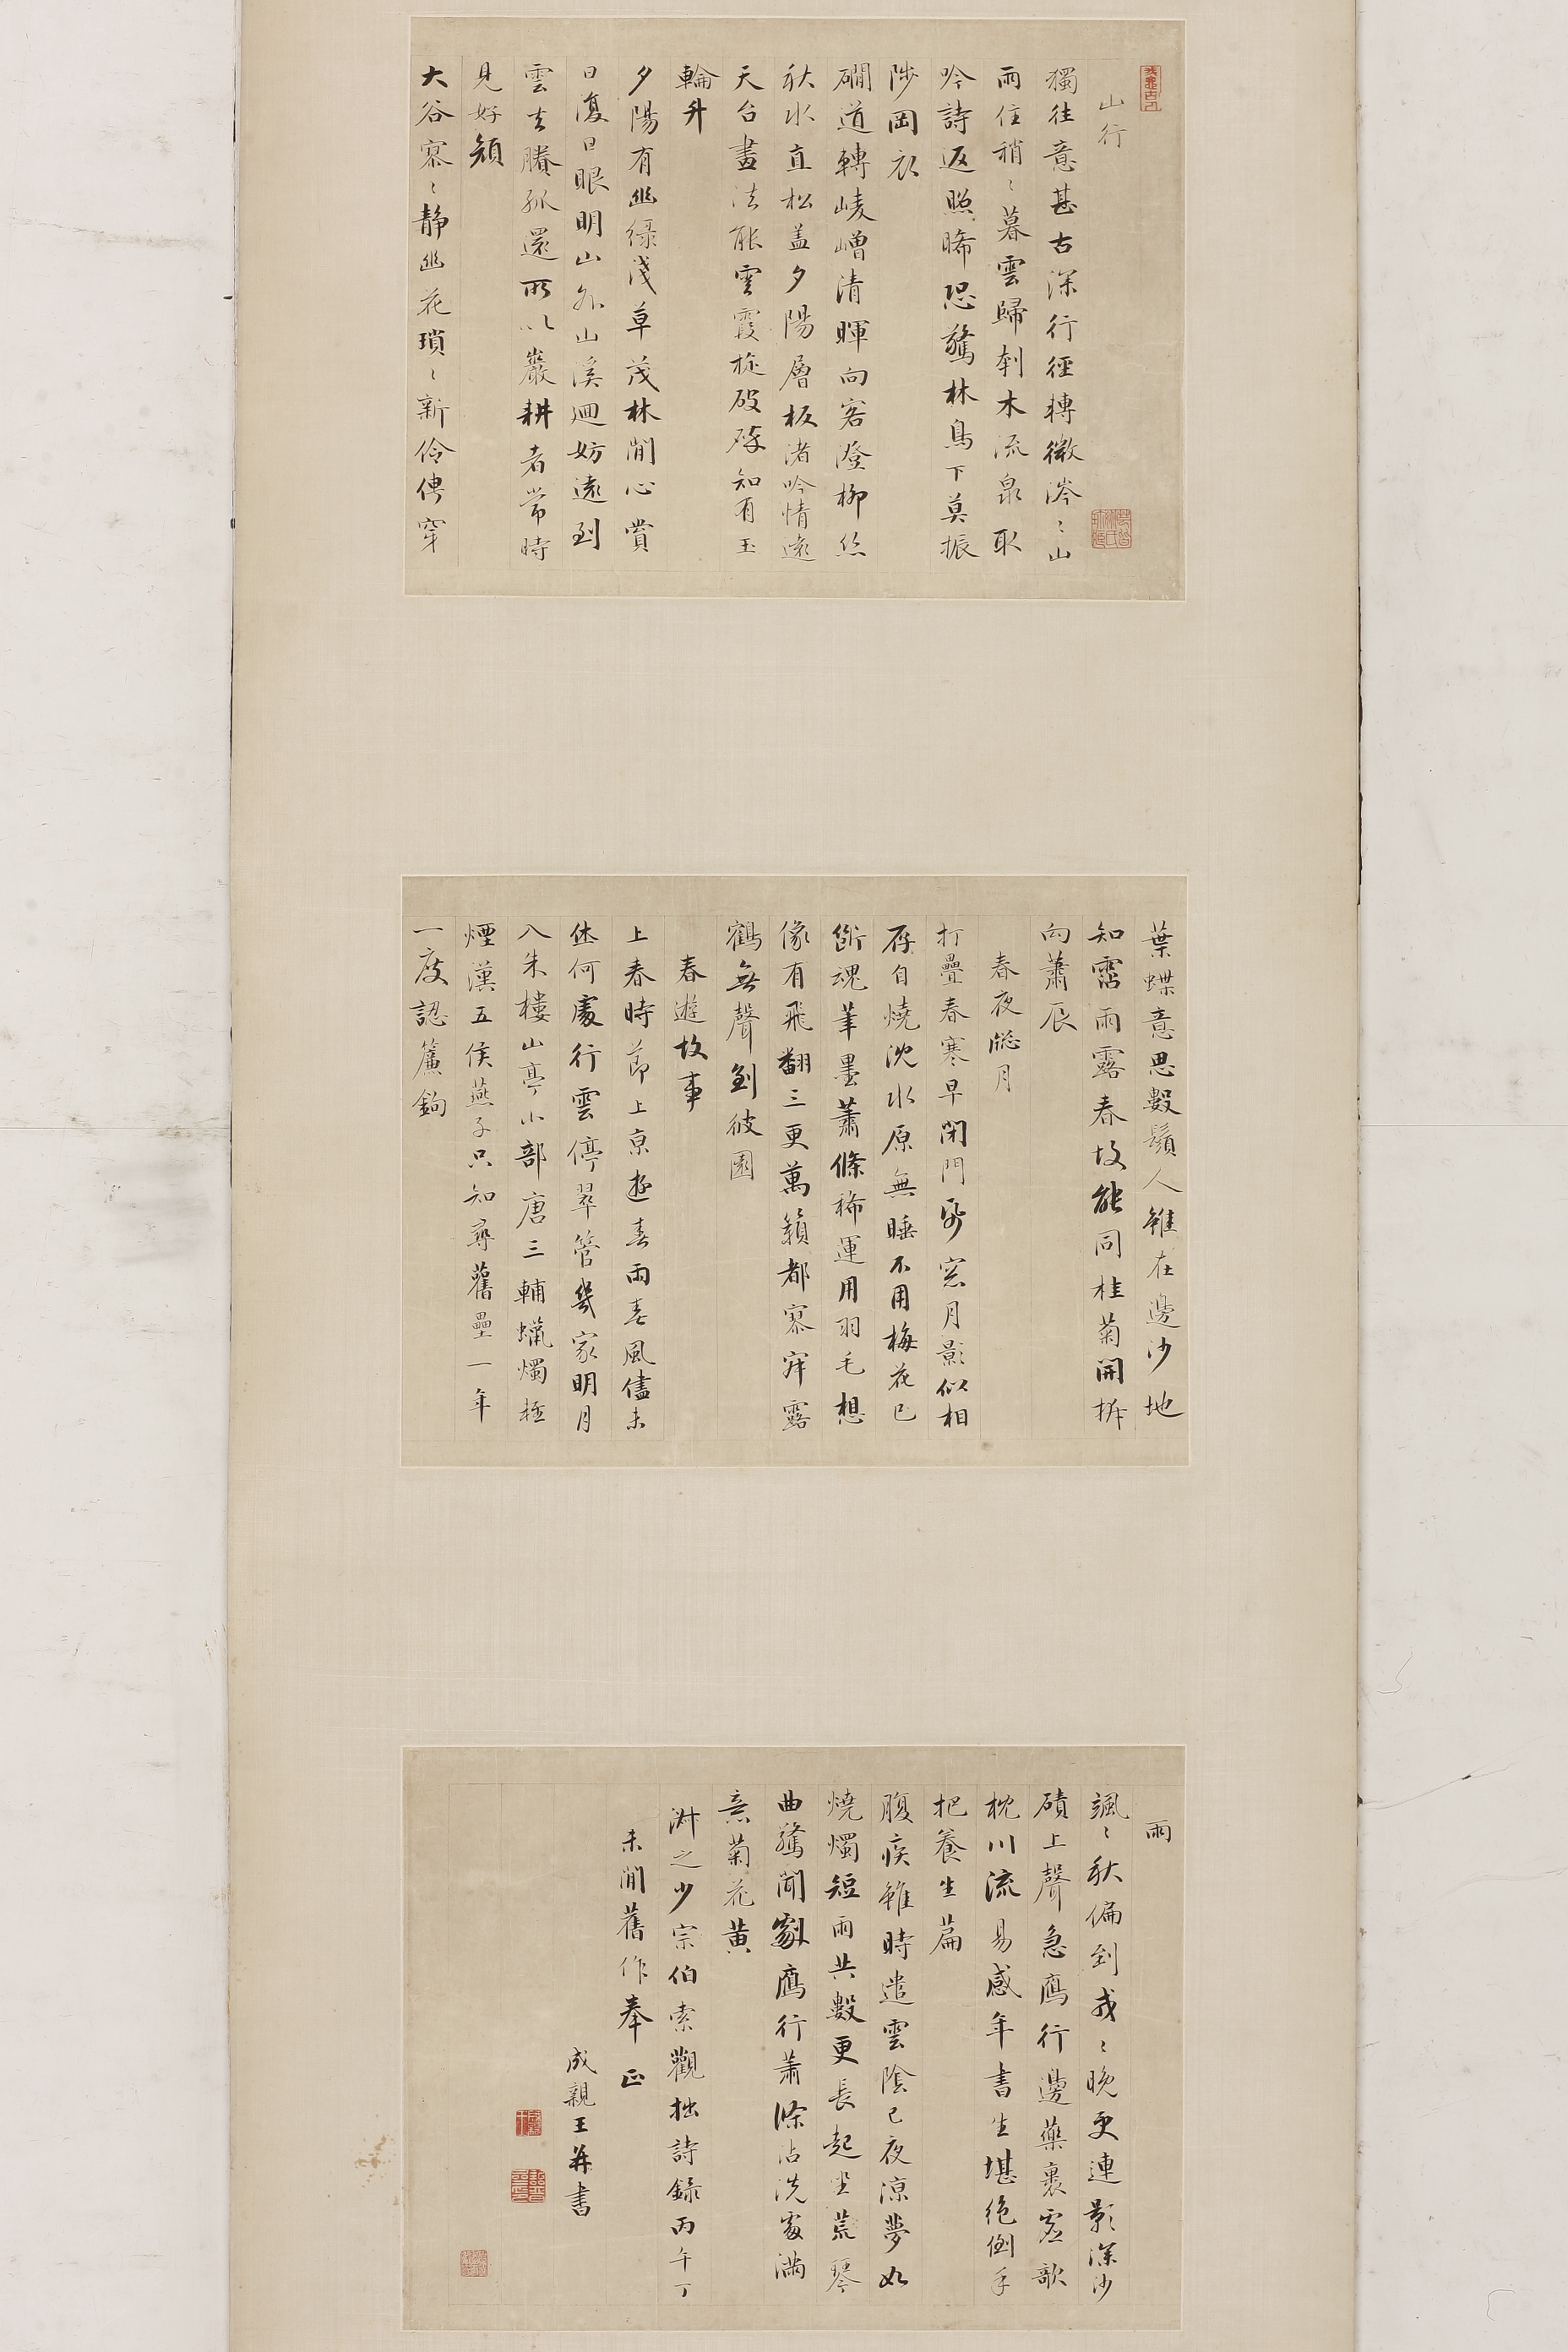 山行
獨往意甚古深行徑轉微涔〻山
雨住稍〻暮雲歸刳木流泉取
吟詩返照晞恐驚林鳥下莫振
陟岡衣
磵道轉崚嶒清暉向客澄柳絲
秋水直松蓋夕陽層板渚吟情遠
天台畫法能雲霞旋破碎知有玉
輪升
夕陽有幽緑淺草茂林間心賞
日復日眼明山外山溪迴妨遠到
雲去賸孤還所以巖耕者常時
見好顏
大谷寥〻靜幽花瑣〻新伶俜穿
葉蝶意思數鬚人雖在邊沙地
知霑雨露春故能同桂菊開拆
向蕭辰
春夜牕月
打疊春寒早閉門風窓月影似相
存自燒沈水原無睡不用梅花已
斷魂筆墨蕭條稀運用羽毛想
像有飛翻三更萬籟都寥寂露
鶴無聲到彼園
春遊故事
上春時節上京遊春雨春風儘未
休何處行雲停翠管幾家明月
入朱樓山亭小部唐三輔蠟燭極
煙漢五侯燕子只知尋舊壘一年
一度認簾鉤
雨
颯〻秋偏到戎〻晚更連影深沙
磧上聲急鴈行邊藥裹虛歌
枕川流易感年書生堪絶倒手
把養生篇
腹疾雖時遣雲陰已夜涼夢如
燒燭短雨共數更長起坐荒琴
曲驚聞劇鴈行蕭條沾洗處滿
意菊花黃
澍之少宗伯索觀拙詩録丙午丁
未間舊作奉 正
成親王并書